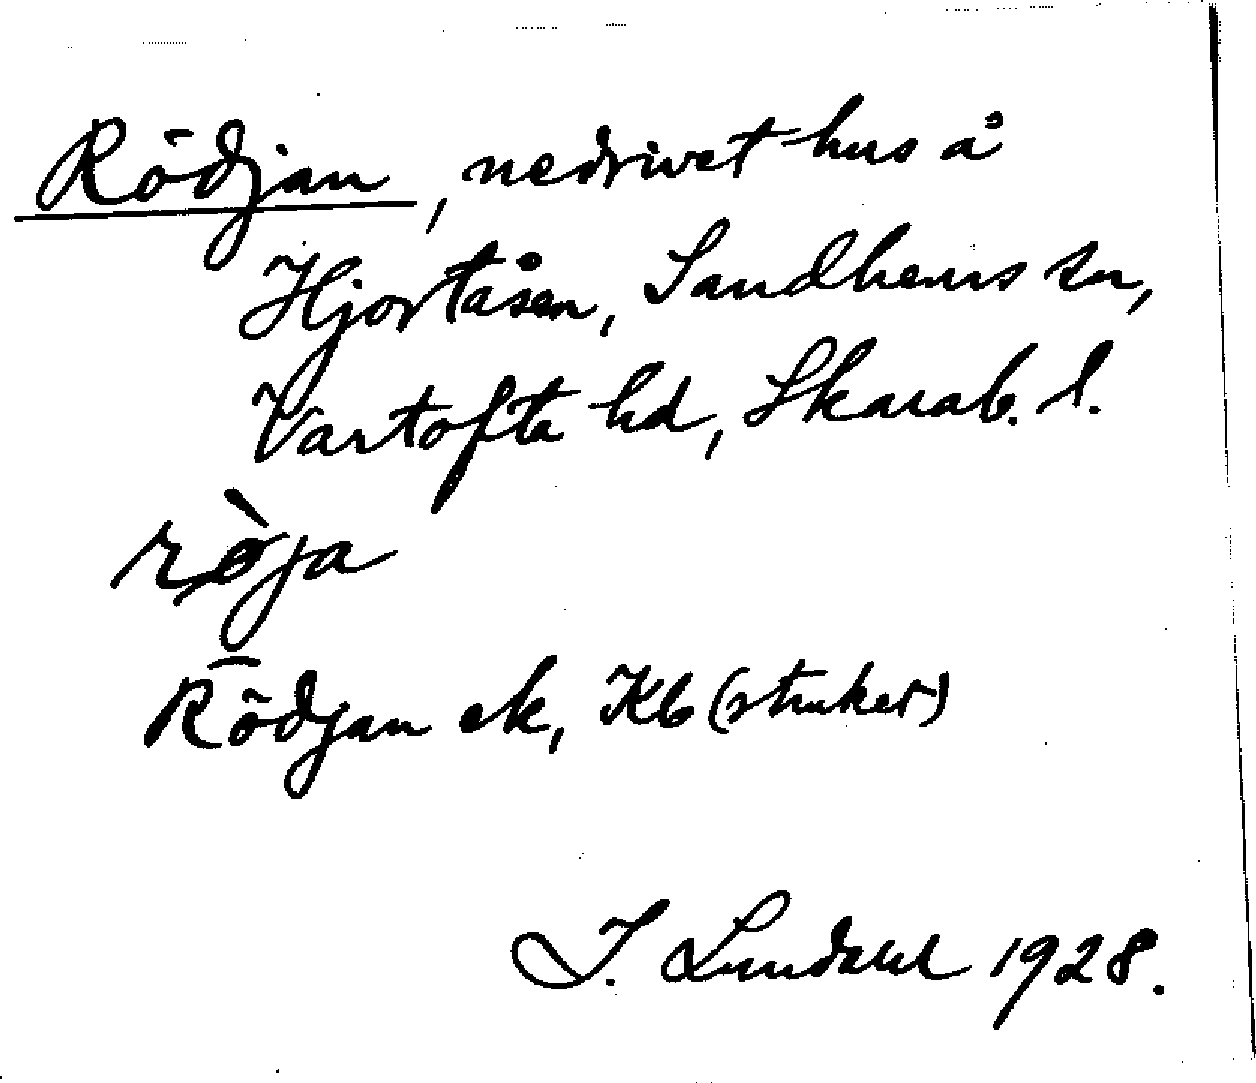 Rödjan, nedrivet hus å
Hjortåsen, Sandhems sn,
Vartofta hd, Skarab. l.
rø̀ja
Rödjan ek, Kb (struket)
I. Lundahl 1928.